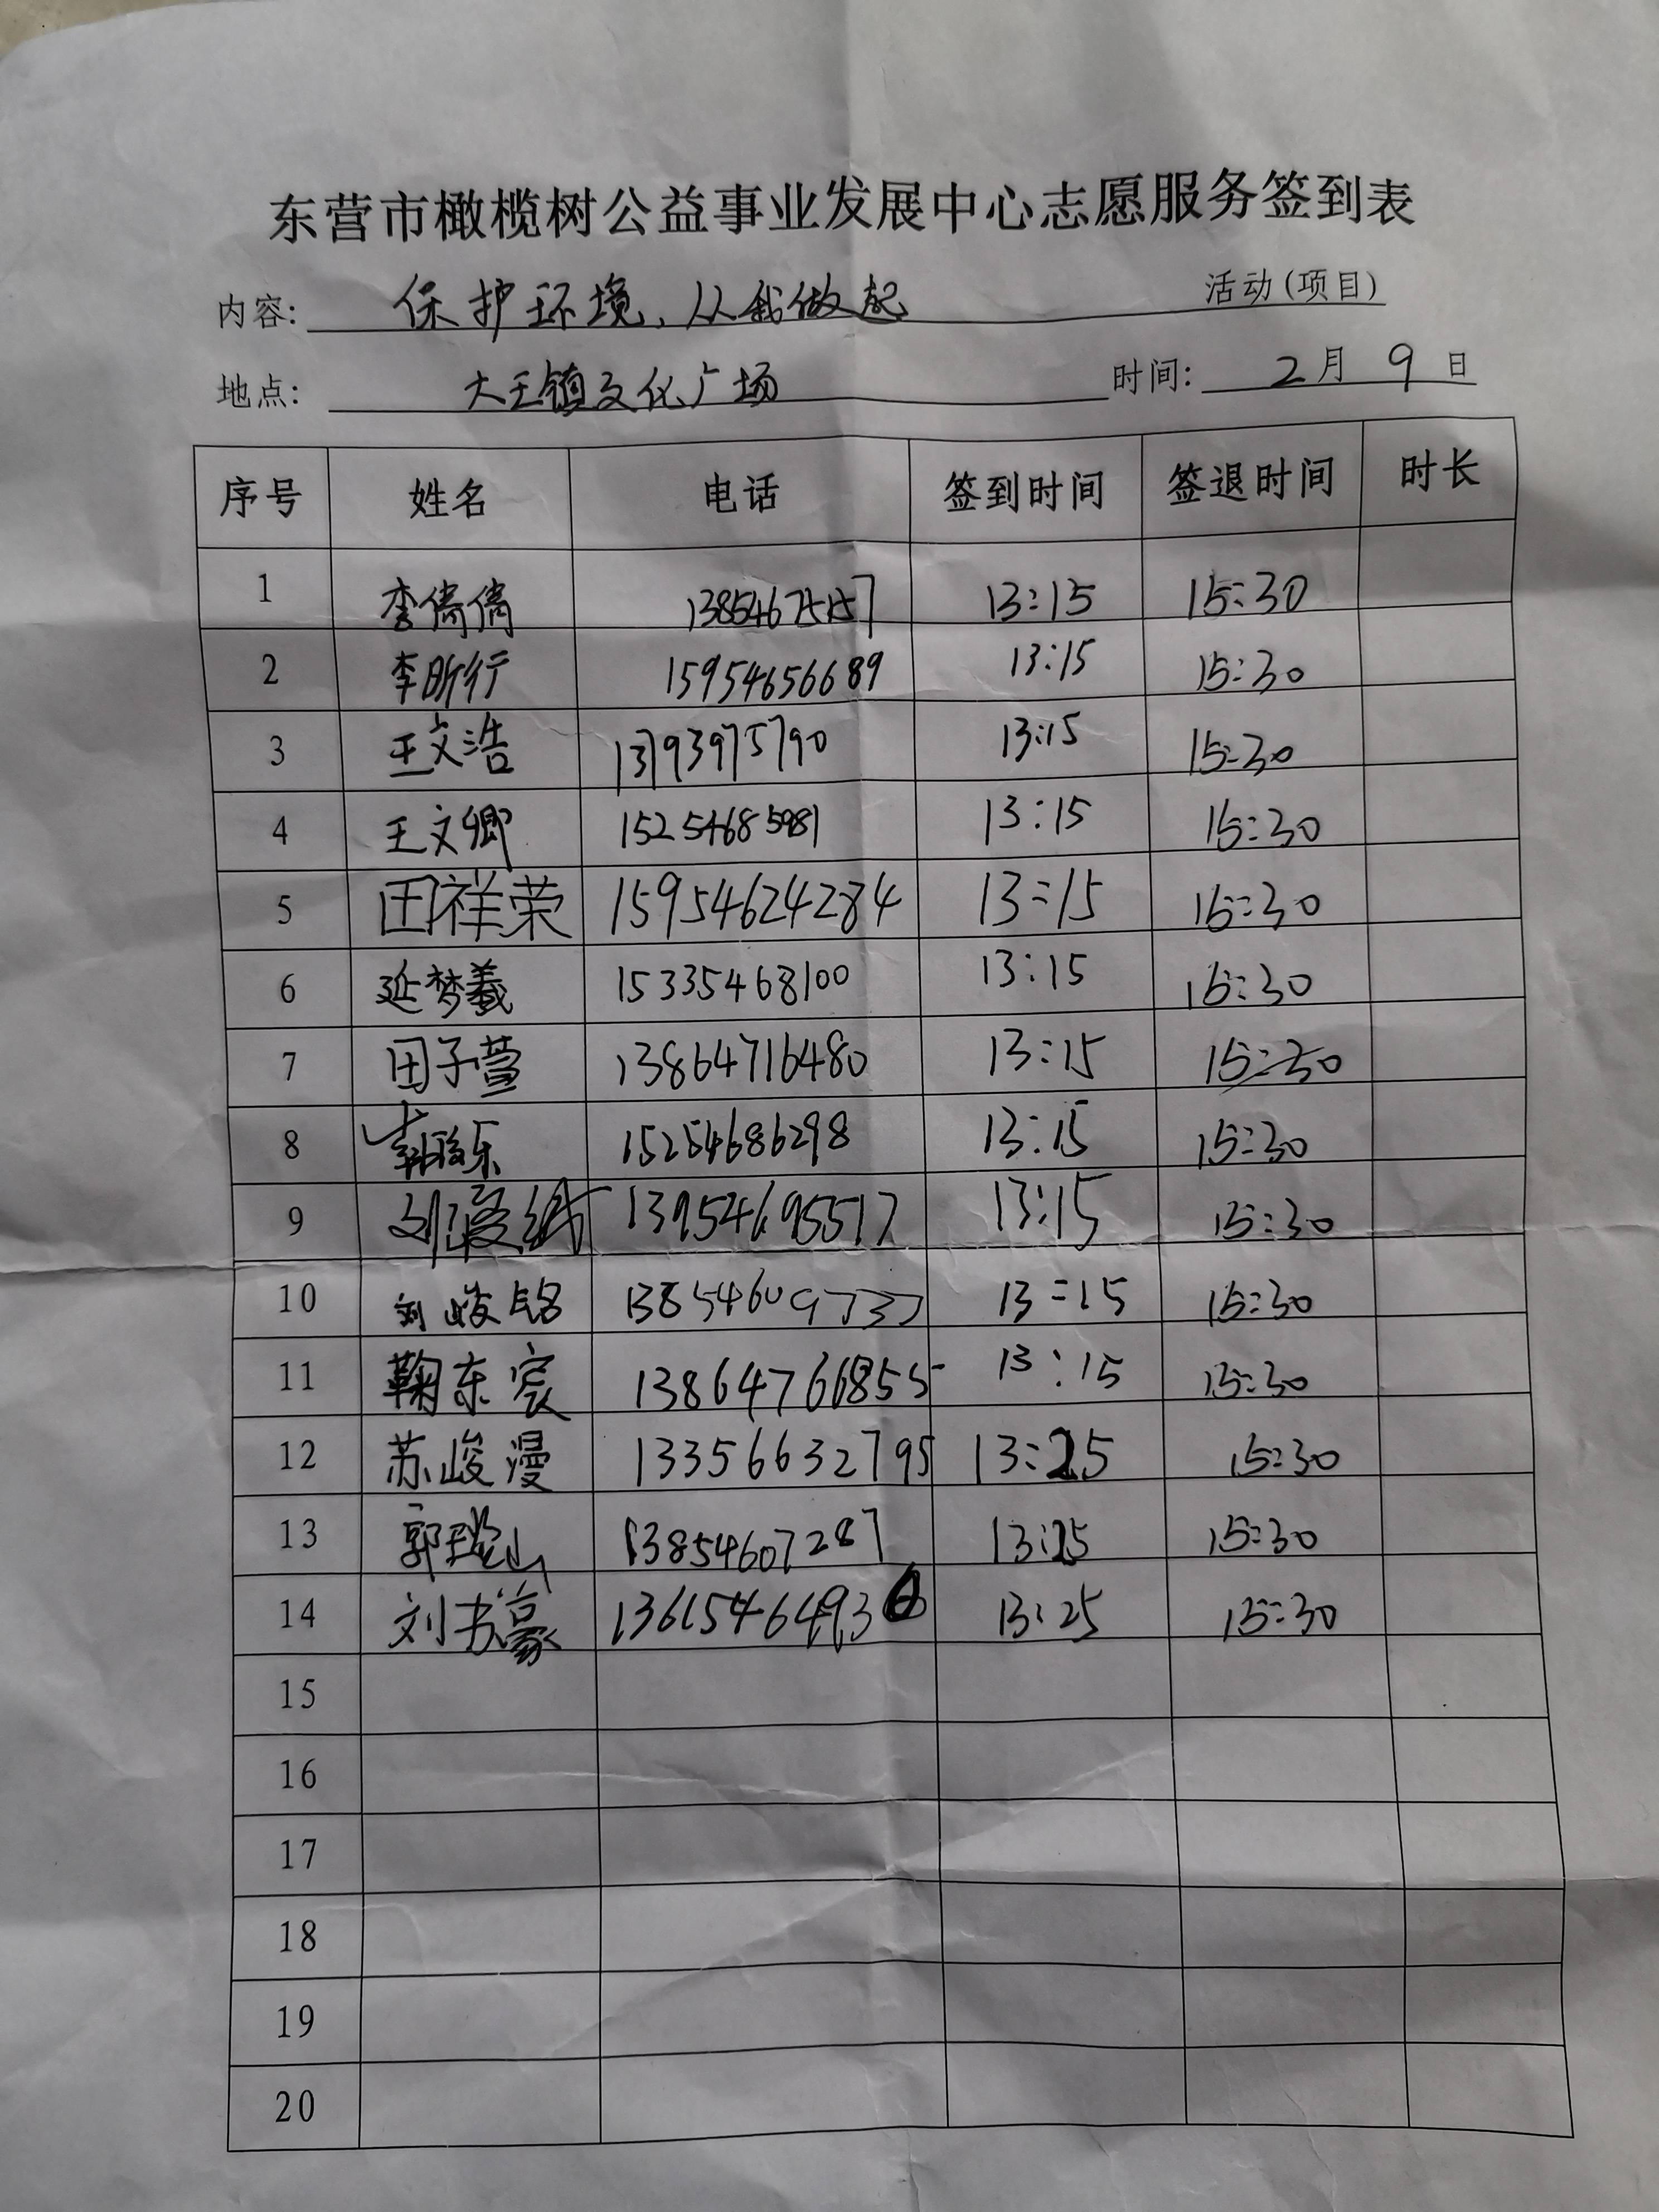 东营市橄榄树公益事业发展中心志愿服务签到表
内容: 保护环境,从我做起 活动(项目)
地点: 大王镇文化广场 时间: 2月9日
序号 姓名 电话 签到时间 签退时间 时长
1 李倩倩 13854675157 13:15 15:30
2 李昕行 15954656689 13:15 15:30
3 王文浩 13793975790 13:15 15:30
4 王文卿 15254685981 13:15 15:30
5 田祥荣 15954624284 13:15 15:30
6 延梦羲 15335468100 13:15 15:30
7 田子萱 13864716480 13:15 15:30
8 15254686298 13:15 15:30
9 13954695517 13:15 15:30
10 刘峻铭 13854609737 13:15 15:30
11 鞠东宸 13864766855 13:15 15:30
12 苏峻漫 13356632795 13:25 15:30
13 13854607287 13:25 15:30
14 刘书豪 13615464936 13:25 15:30
15
16
17
18
19
20